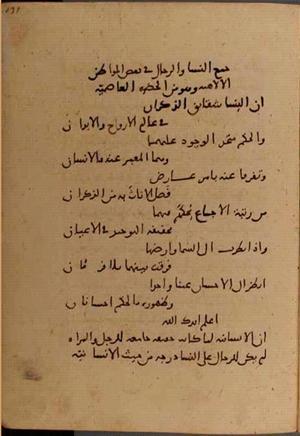 جمع النسا والرجال فى بعض المواطن
الالهيه وهو من الحضره العاصميه
ان النسا شقايق الذكران
فى عالم الارواح والابدان
والحكم متحد الوجود عليهما
وهما المعبر عنه بالانسان
وتفرقا عنه بامر عارض
فصل الاناث به من الذكران
من رتبة الاجماع تحكم فيهما
بحقيقه التوحيد فى الاعيان
واذا نظرت الى السما وارضها
فرقت بينهما بلا فرقان
انظر الى الاحسان عينا واحدا
وظهوره بالحكم احسانان
اعلم ايدك الله
ان الانسانيه لما كانت حقيقه جامعه للرجل والمراه
لم يكن للرجال على النسا درجه من حيث الانسانيه